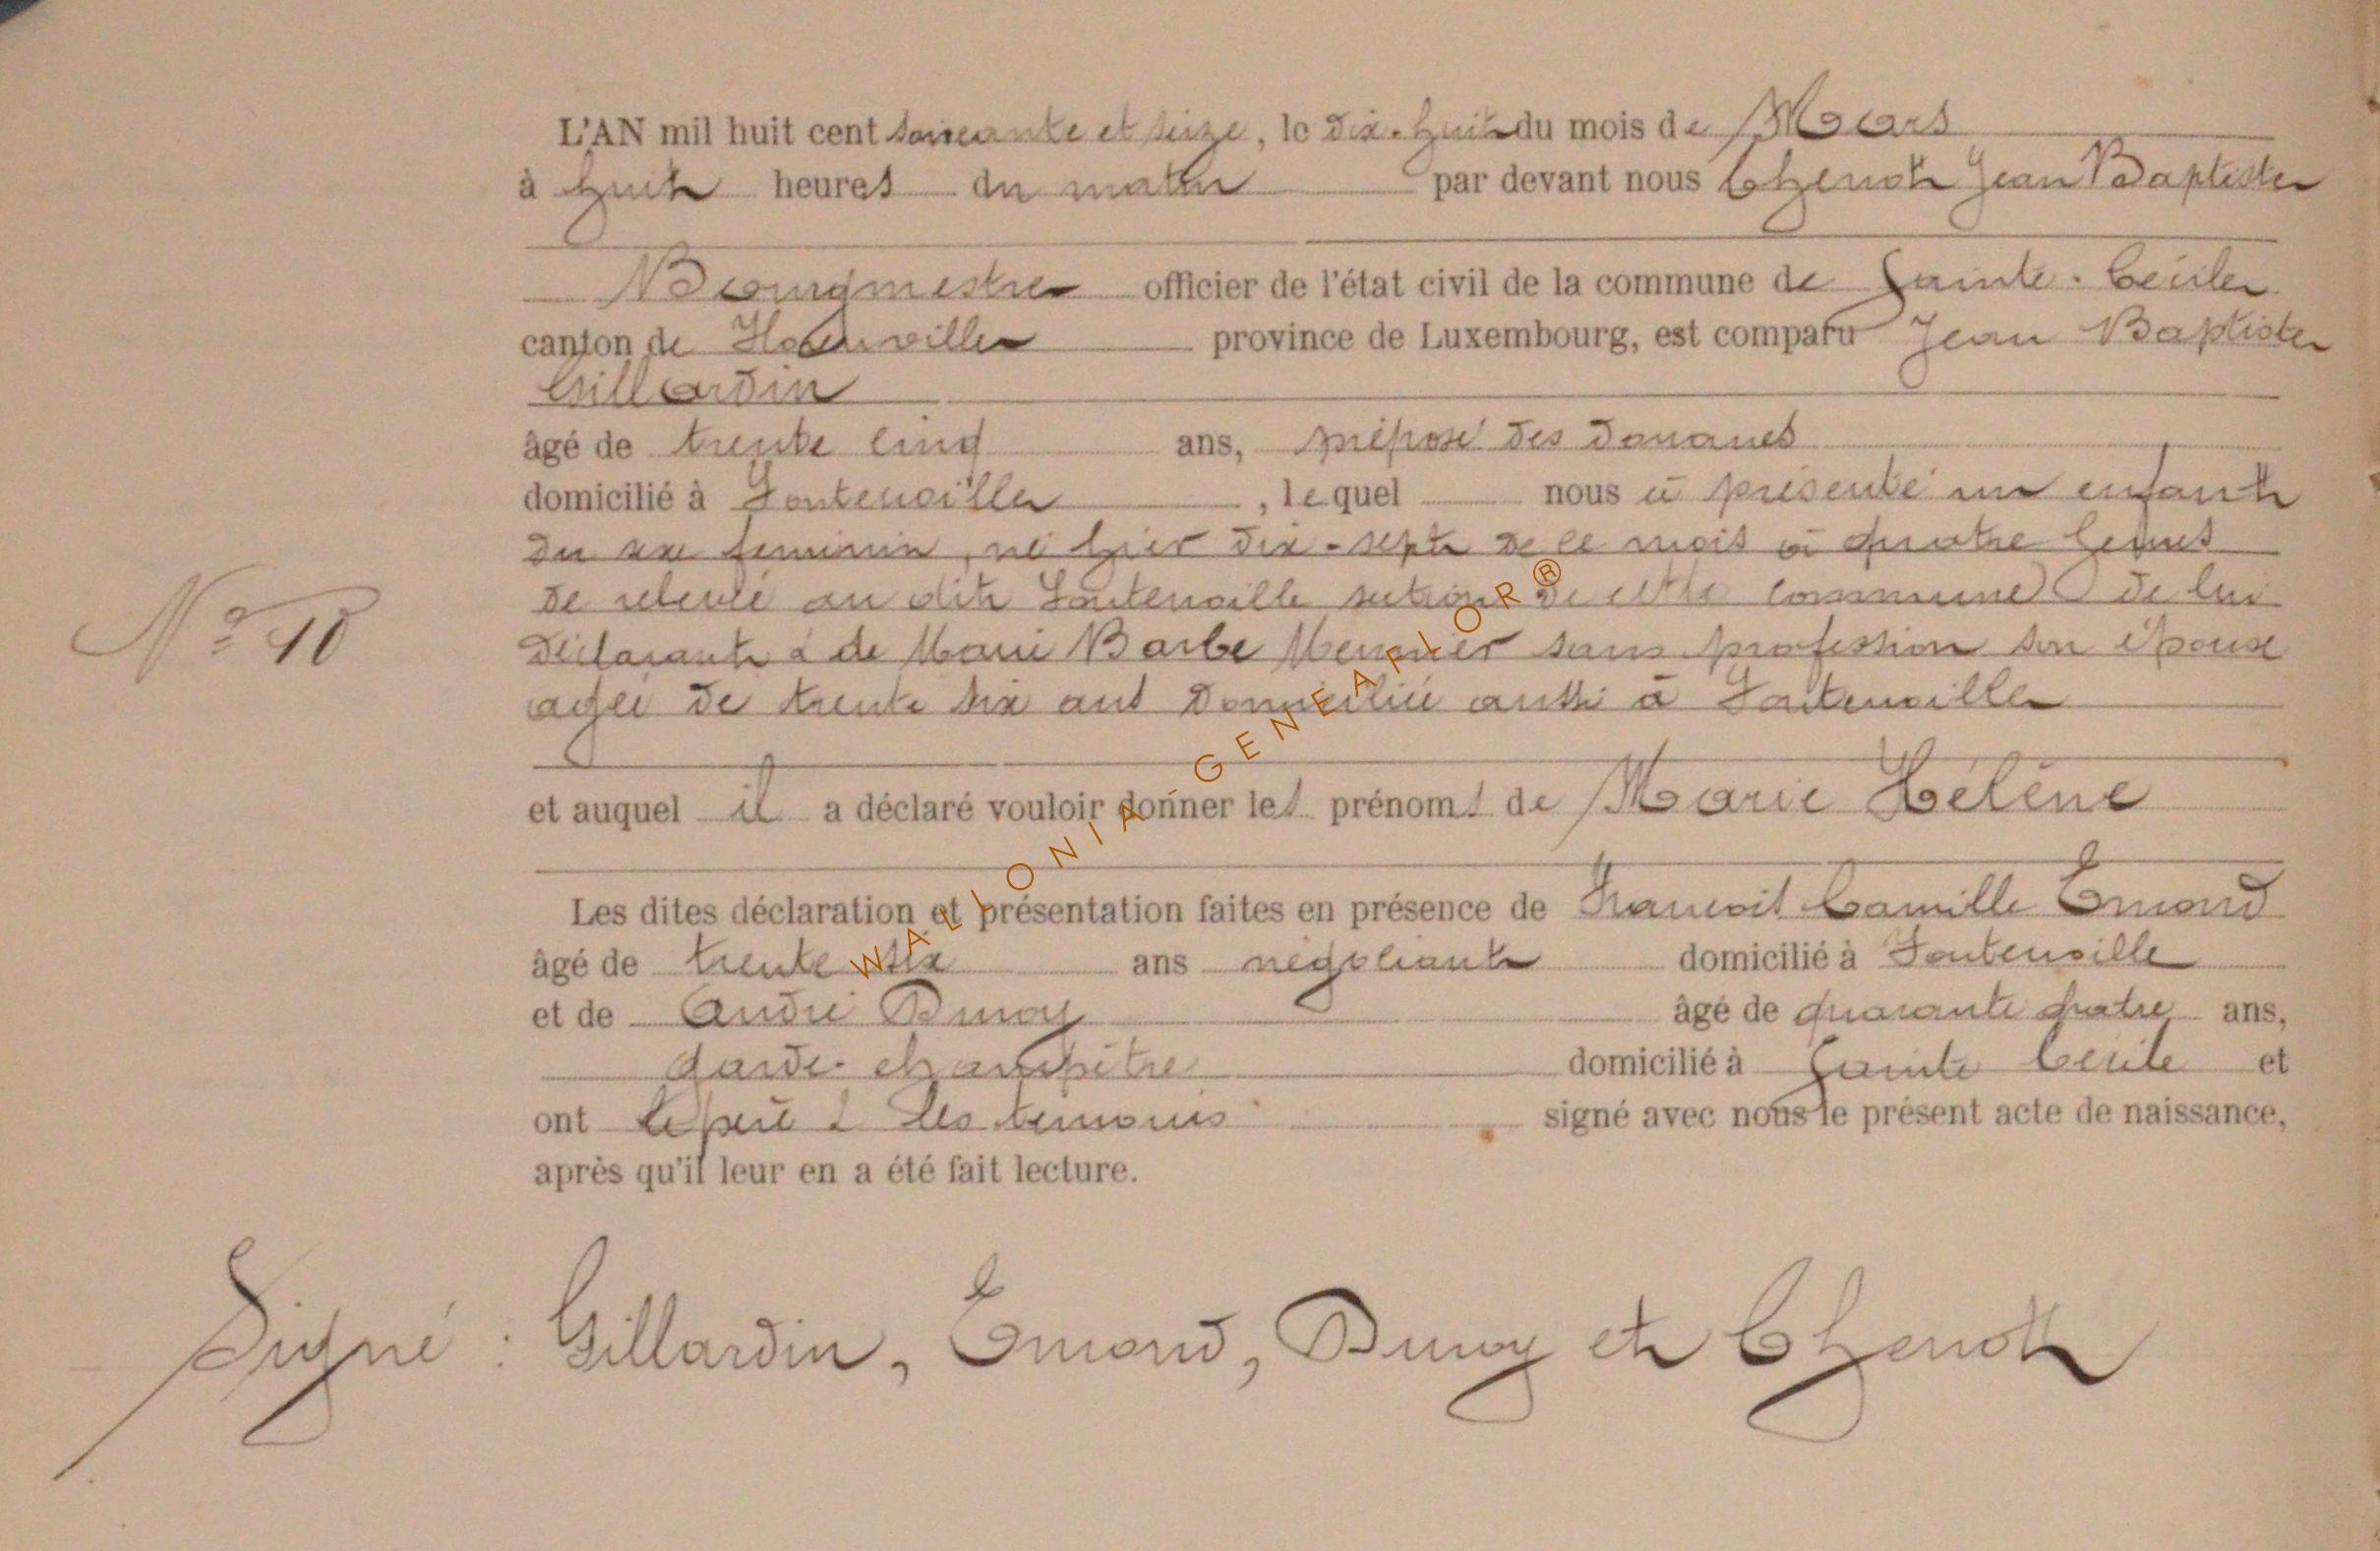 L'AN mil huit cent soixante et seize, le dix-huit du mois de Mars
à huit heures du matin par devant nous Chenot Jean Baptiste
Bourgmestre officier de l'état civil de la commune de Sainte-Cécile
canton de Florenville province de Luxembourg, est comparu Jean Baptiste
Gillardin
âgé de trente cinq ans, préposé des douanes
domicilié à Fontenoille, lequel nous a présenté un enfant
du sexe feminin, né hier dix-sept de ce mois à quatre heures
de relevée au dit Fontenoille section de cette commune de lui
N° 10
déclarant & de Marie Barbe Meunier sans profession son épouse
agée de trente six ans domiciliée aussi à Fontenoille
et auquel il a déclaré vouloir donner les prénoms de Marie Hélène
Les dites déclaration et présentation faites en présence de Francois Camille Emond
âgé de trente six ans négociant domicilié à Fontenoille
et de André Dunoy âgé de quarante quatre ans,
garde-champêtre domicilié à Sainte Cécile et
ont le père & les témoins signé avec nous le présent acte de naissance,
après qu'il leur en a été fait lecture.
Signé : Gillardin, Emond, Dunoy et Chenot
WALLONIA GENEAFLOR®